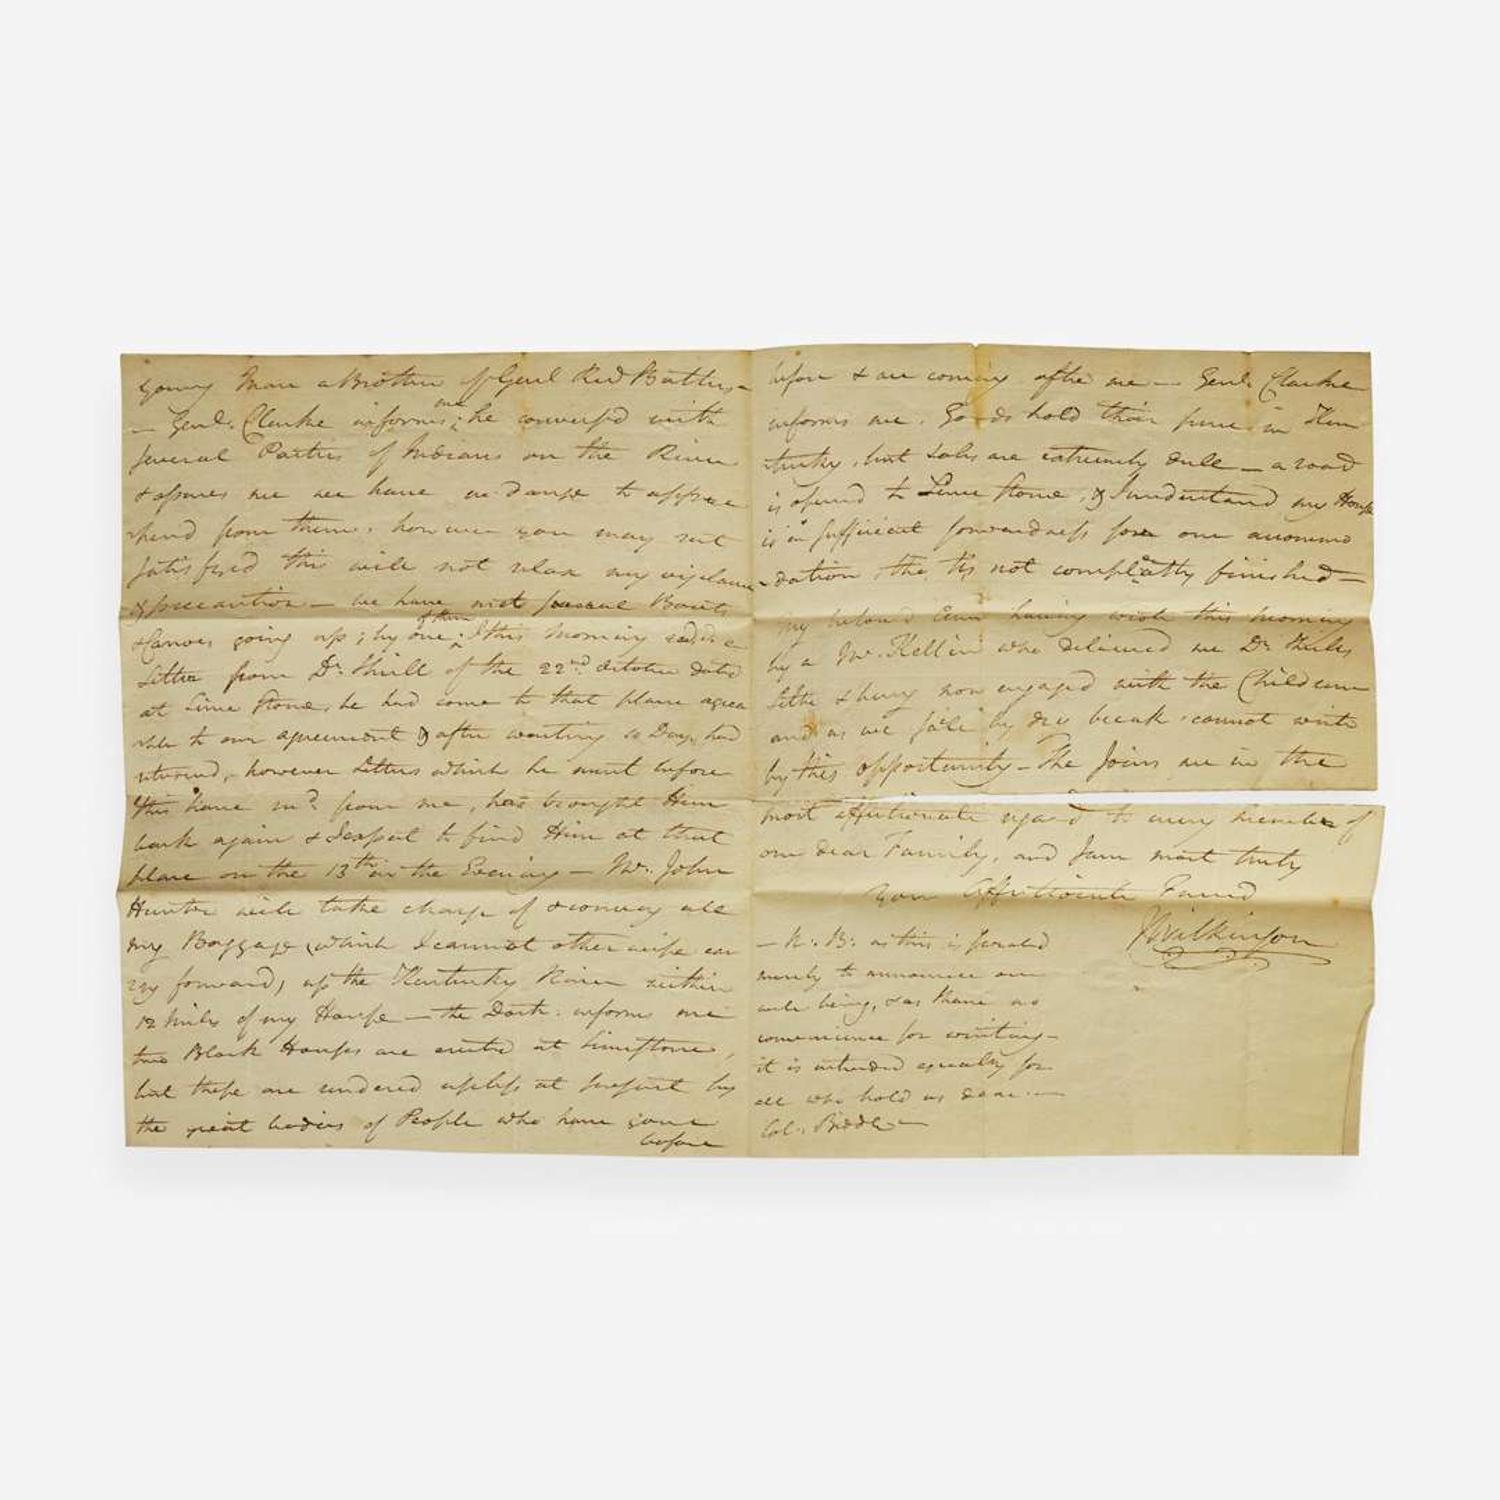 young Man a Brother of Genl Rd Butlers
— Genl. Clarke informs me, he convers'd with
several Parties of Indians on the River
& assures me we have no danger to appre
hend from them. however you may rest
satisfyed this will not relax my vigilance
& precaution — we have met several Boats
& Canoes going up; by one of them I this morning
Letter from Dr. Skull of the 22nd October dated
at Lime Stone, he had come to that place agrea
able to our agreement & after waiting 10 Days had
returned, however Letters which he must before
this have recd. from me, has brought Him
back again & I expect to find Him at that
place on the 13th in the Evening — Mr. John
Hunter will take charge of & convey all
my Baggage (which I cannot otherwise car
ry forward) up the Kentucky River within
12 Miles of my House — the Doctr. informs me
two Block Houses are erected at Limestone,
but these are rendered useless at present by
the great bodies of People who have gone
before
before & are coming after me — Genl. Clarke
informs me. Goods hold their price in Ken
tucky, but Sales are extremely dull — a road
is opened to Lime Stone, & I understand my House
is in sufficient forwardness for our accommo
dation, tho. tis not compleatly finished —
my beloved Ann having this morning
by a Mr. who delivered me Dr.
Letter & being now engaged with the Children
and as we sail by day break cannot write
by this opportunity — She Joins me in the
most affectionate regard to every member of
our dear Family, and I am most truly
your Affectionate Friend
JWilkinson
— N. B: as this is
merely to announce our
well being, & as there is no
convenience for writing —
it is intended equally for
all who hold us dear. —
Col. Biddle —